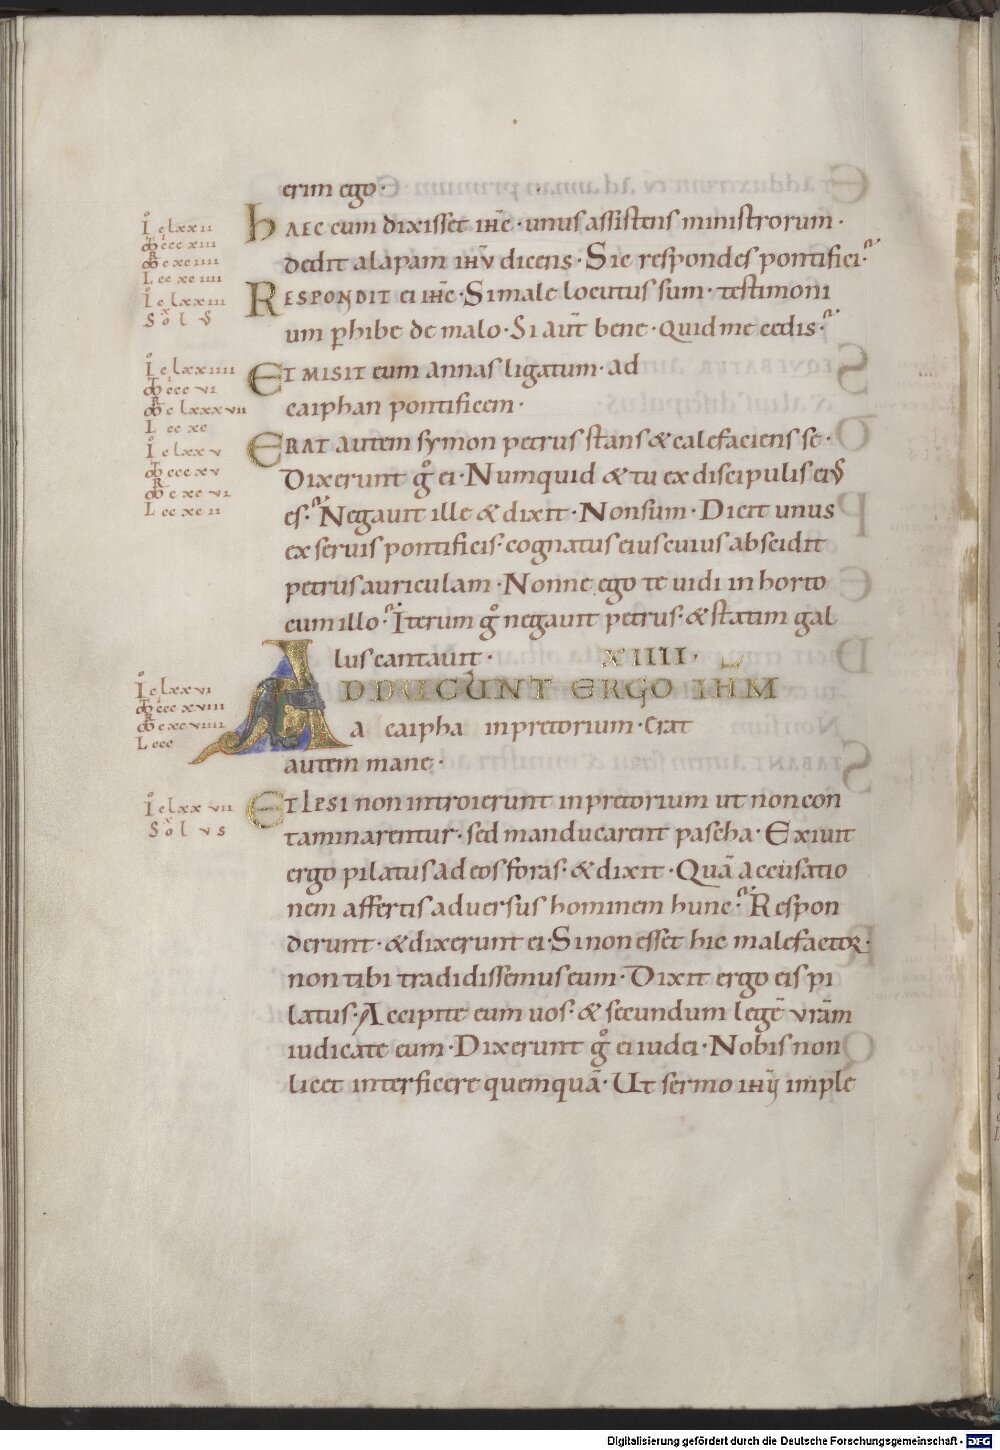 erim ego·
HAEC cum dixisset ihc̄·unus assistens ministrorum·
dedit alapam ihū dicens·Sic respondes pontifici·
RESPONDIT ei ihc̄·Si male locutus sum·testimoni
um phibe de malo·Si aut̄ bene·quid me cedis·
ET MISIT eum annas ligatum·ad
caiphan pontificem·
ERAT autem symon petrus stans & calefaciens se·
Dixerunt g̊ ei·Numquid & tu ex discipulis eius
es·Negauit ille & dixit·Non sum·Dicit unus
ex seruis pontificis·cognatus eius cuius abscidit
petrus auriculam·Nonne ego te uidi in horto
cum illo·Iterum g̊ negauit petrus·& statim gal
lus cantauit·
XIIII·
ADDUCUNT ERGO IHM
a caipha in pretorium·Erat
autem mane·
ET IPSI non introierunt in pretorium ut non con
taminarentur·sed manducarent pascha·Exiuit
ergo pilatus ad eos foras·& dixit·Quā accusatio
nem affertis aduersus hominem hunc·Respon
derunt·& dixerunt ei·Si non esset hic malefactor·
non tibi tradidissemus eum·Dixit ergo eis pi
latus·Accipite eum uos·& secundum legē vrām
iudicate eum·Dixerunt g̊ ei iudei·Nobis non
licet interficere quemquā·Ut sermo ihu imple
Io clxxii
Io clxxiii
Sol
Io clxxiiii
L cc xc
Io clxxv
Io clxxvi
L ccc
Io clxxvii
Sol
Digitalisierung gefördert durch die Deutsche Forschungsgemeinschaft - DFG